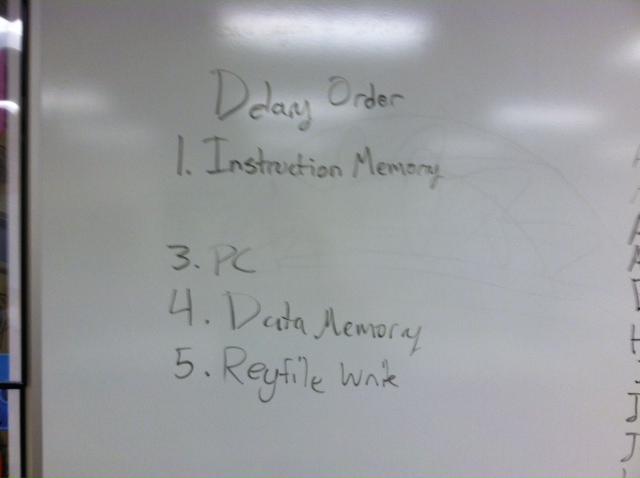 Delay Order
1. Instruction Memory
3. PC
4. Data Memory
5. Regfile Write